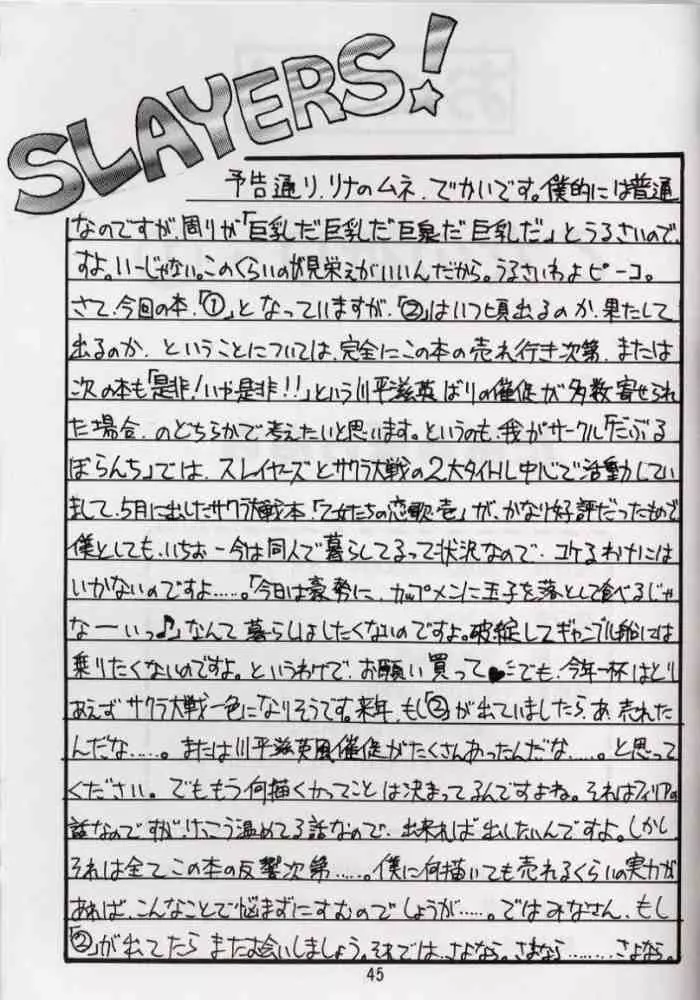 SLAYERS!
予告通り、リナのムネ、でかいです。僕的には普通
なのですが、周りが「巨乳だ巨乳だ巨乳だ巨乳だ」とうるさいので
すよ。いーじゃない。このくらいのが見栄えがいいんだから。うるさいわよピーコ。
さて、今回の本、「①」となっていますが、「②」はいつ頃出るのか、果たして
出るのか、ということについては、完全にこの本の売れ行き次第、または
次の本も「是非!いや是非!!」という川平滋英ばりの催促が多数寄せられ
た場合、のどちらかで考えたいと思います。というのも、我がサークル「だぶる
ぼらんち」では、スレイヤーズとサクラ大戦の2大タイトル中心で活動してい
まして、5月に出したサクラ大戦本「乙女たちの恋歌壱」が、かなり好評だったもので
僕としても、いちおー今は同人で暮らしてるって状況なので、コケるわけには
いかないのですよ……。「今日は豪勢に、カップメンに玉子を落として食べるじゃ
なーいっ♪」なんて暮らしはしたくないのですよ。破綻してギャンブル船には
乗りたくないのですよ。というわけで、お願い買って♥でも、今年一杯はとり
あえずサクラ大戦一色になりそうです。来年、もし「②」が出ていましたら、あ、売れた
んだな……。または川平滋英風催促がたくさんあったんだな……。と思って
ください。でももう何描くかってことは決まってるんですよね。それはフィリアの
話なのですが、けっこう温めてる話なので、出来れば出したいんですよ。しかし
それは全てこの本の反響次第……。僕に何描いても売れるくらいの実力が
あれば、こんなことで悩まずにすむのでしょうが……。ではみなさん、もし
「②」が出てたらまたお会いしましょう。それでは、さよなら。さよなら………さよなら。
45